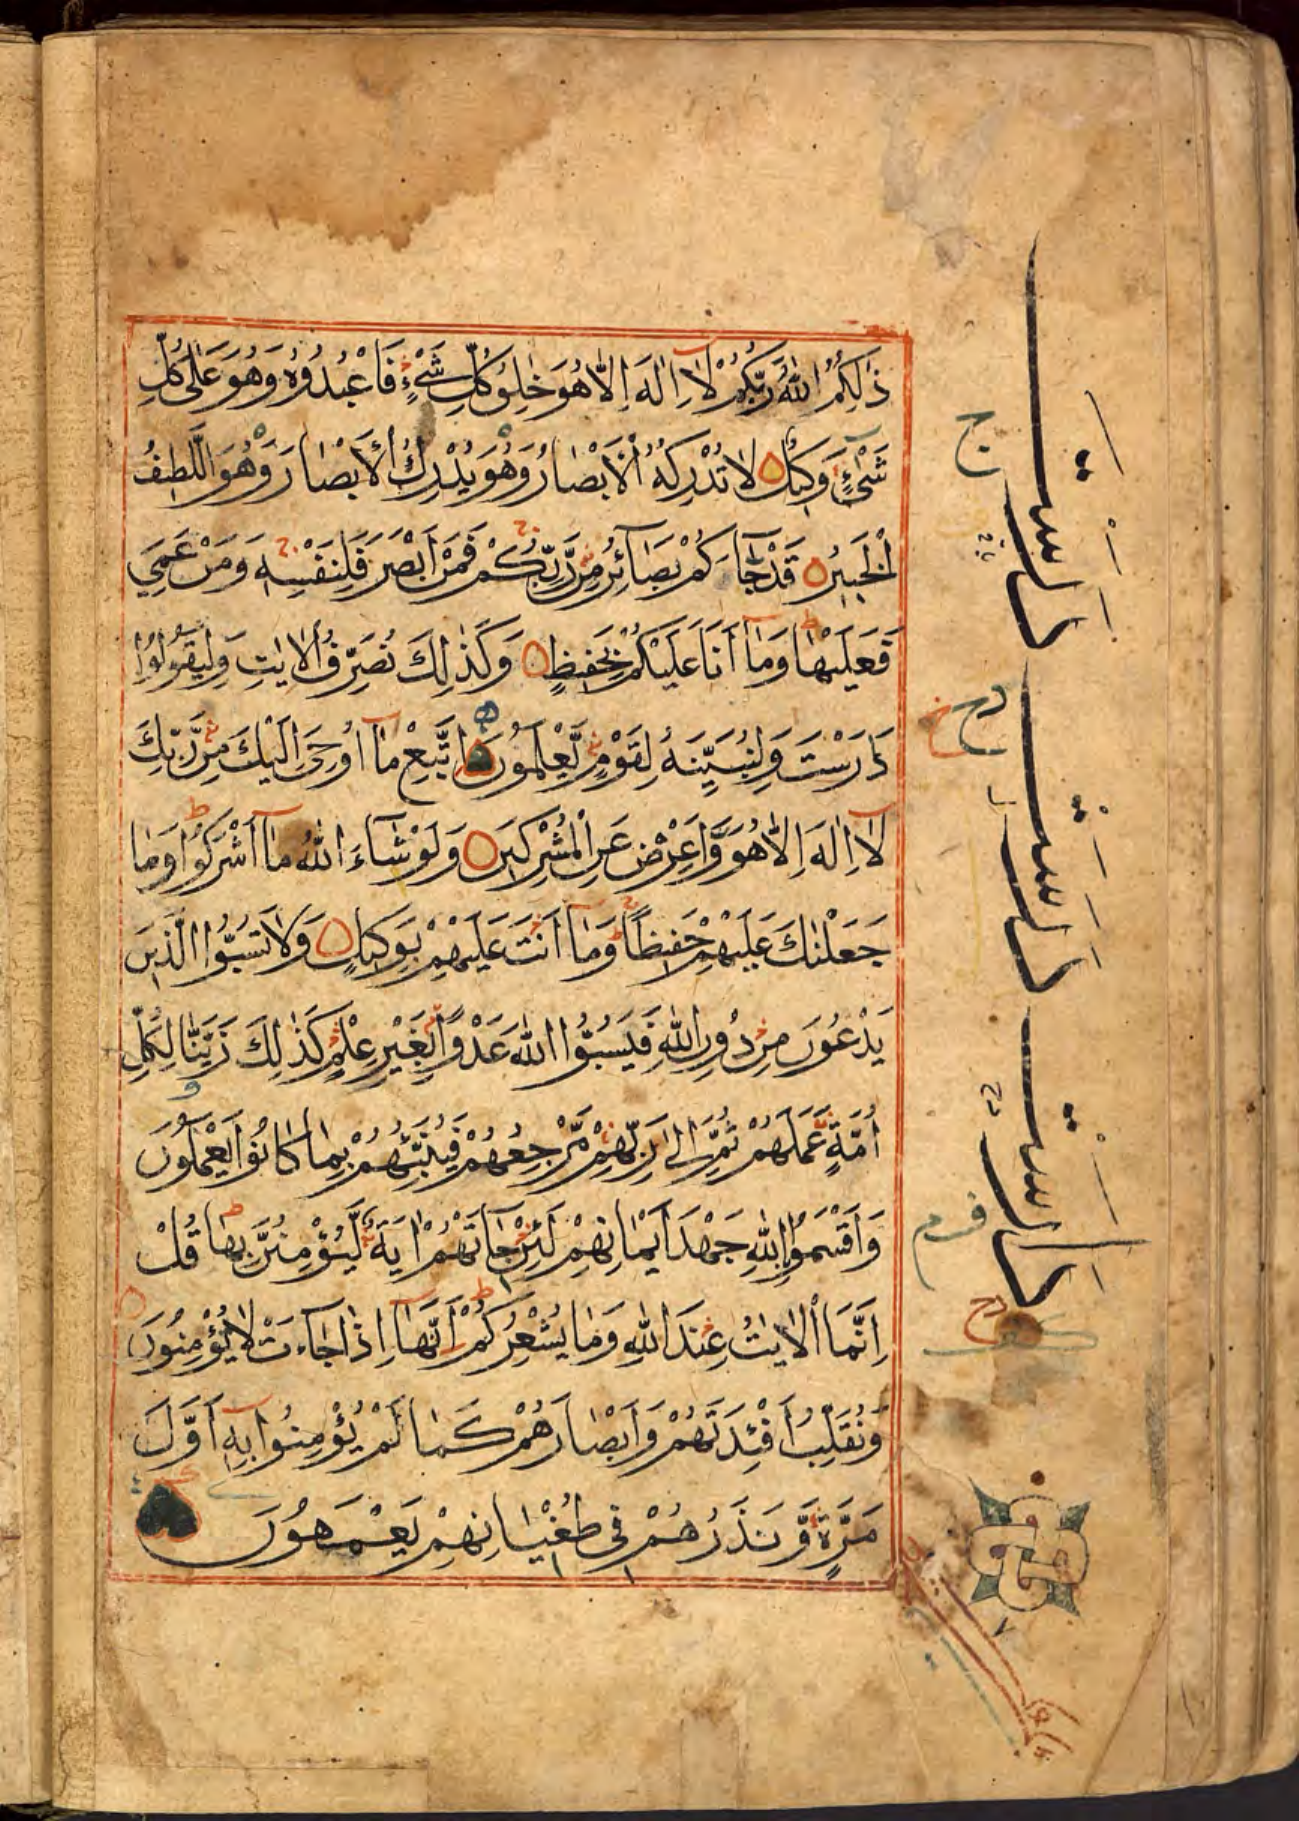 ذٰلِكُمُ اللّٰهُ رَبُّكُمْ لَآ اِلٰهَ اِلَّا هُوَ خٰلِقُ كُلِّ شَیْءٍ فَاعْبُدُوْهُ وَهُوَ عَلٰى كُلِّ
شَیْءٍ وَّكِيْلٌ لَا تُدْرِكُهُ الْاَبْصَارُ وَهُوَ يُدْرِكُ الْاَبْصَارَ وَهُوَ اللَّطِيْفُ
الْخَبِيْرُ قَدْ جَآءَكُمْ بَصَآئِرُ مِنْ رَّبِّكُمْ فَمَنْ اَبْصَرَ فَلِنَفْسِهٖ وَمَنْ عَمِيَ
فَعَلَيْهَا وَمَآ اَنَا عَلَيْكُمْ بِحَفِيْظٍ وَكَذٰلِكَ نُصَرِّفُ الْاٰيٰتِ وَلِيَقُوْلُوْا
دَرَسْتَ وَلِنُبَيِّنَهٗ لِقَوْمٍ يَّعْلَمُوْنَ اِتَّبِعْ مَآ اُوْحِيَ اِلَيْكَ مِنْ رَّبِّكَ
لَآ اِلٰهَ اِلَّا هُوَ وَاَعْرِضْ عَنِ الْمُشْرِكِيْنَ وَلَوْ شَآءَ اللّٰهُ مَآ اَشْرَكُوْا وَمَا
جَعَلْنٰكَ عَلَيْهِمْ حَفِيْظًا وَمَآ اَنْتَ عَلَيْهِمْ بِوَكِيْلٍ وَلَا تَسُبُّوا الَّذِيْنَ
يَدْعُوْنَ مِنْ دُوْنِ اللّٰهِ فَيَسُبُّوا اللّٰهَ عَدْوًا بِغَيْرِ عِلْمٍ كَذٰلِكَ زَيَّنَّا لِكُلِّ
اُمَّةٍ عَمَلَهُمْ ثُمَّ اِلٰى رَبِّهِمْ مَّرْجِعُهُمْ فَيُنَبِّئُهُمْ بِمَا كَانُوْا يَعْمَلُوْنَ
وَاَقْسَمُوْا بِاللّٰهِ جَهْدَ اَيْمَانِهِمْ لَئِنْ جَآءَتْهُمْ اٰيَةٌ لَّيُؤْمِنُنَّ بِهَا قُلْ
اِنَّمَا الْاٰيٰتُ عِنْدَ اللّٰهِ وَمَا يُشْعِرُكُمْ اَنَّهَآ اِذَا جَآءَتْ لَا يُؤْمِنُوْنَ
وَنُقَلِّبُ اَفْئِدَتَهُمْ وَاَبْصَارَهُمْ كَمَا لَمْ يُؤْمِنُوْا بِهٖٓ اَوَّلَ
مَرَّةٍ وَّنَذَرُهُمْ فِيْ طُغْيَانِهِمْ يَعْمَهُوْنَ